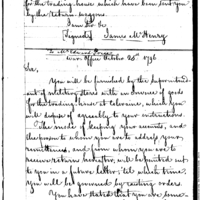 for the trading house which have been sent you
by the return waggons.
I am Sir &c
(Signed) James McHenry
To Edward Price
War Office October 20th 1796
Sir,
You will be furnished by the Superintend-
ent of military stores with an Invoice of goods
for the trading house at Coleraine, which you
will dispose of agreeably to your instructions.
The mode of keeping your accounts, and
the person to whom you are to address your
remittances, and from whom you are to
receive returns hereafter, will be pointed out
to you in a future letter; till which time,
You will be governed by existing orders.
You have stated that you are some-